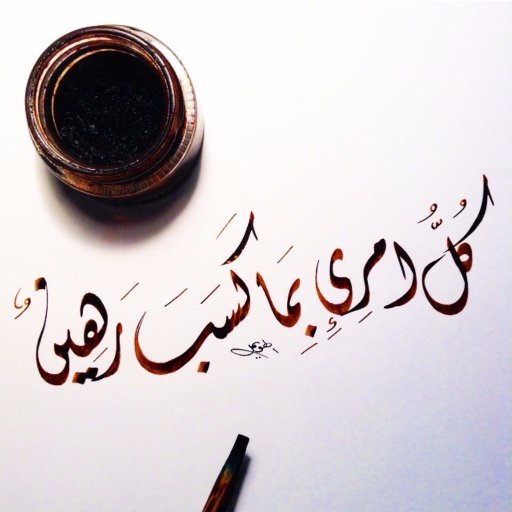 كُلُّ امرِئٍ بِمَا كَسَبَ رَهِينٌ